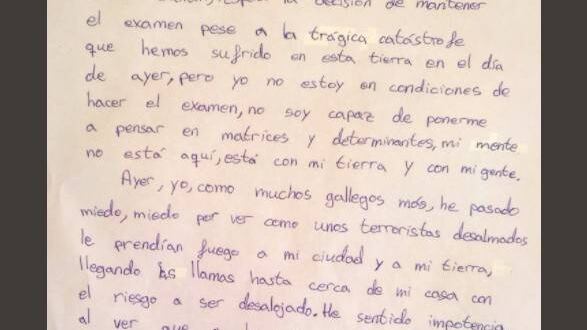 la decisión de mantener
el examen pese a la trágica catástrofe
que hemos sufrido en esta tierra en el día
de ayer, pero yo no estoy en condiciones de
hacer el examen, no soy capaz de ponerme
a pensar en matrices y determinantes, mi mente
no está aquí, está con mi tierra y con mi gente.
Ayer, yo, como muchos gallegos más, he pasado
miedo, miedo por ver como unos terroristas desalmados
le prendían fuego a mi ciudad y a mi tierra,
llegando las llamas hasta cerca de mi casa con
el riesgo a ser desalojado. He sentido impotencia
al ver que